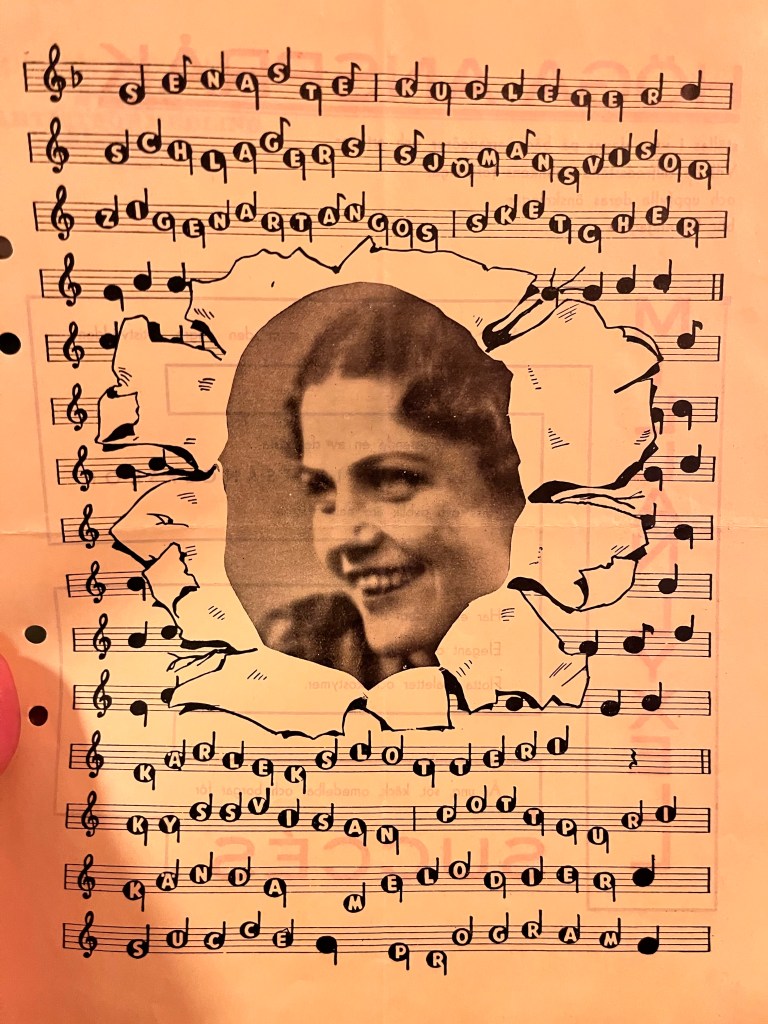 SENASTE KUPLETER
SCHLAGERS SJÖMANSVISOR
ZIGENARTANGOS SKETCHER
KÄRLEKSLOTTERI
KYSSVISAN POTTPURI
KÄNDA MELODIER
SUCCÉ PROGRAM